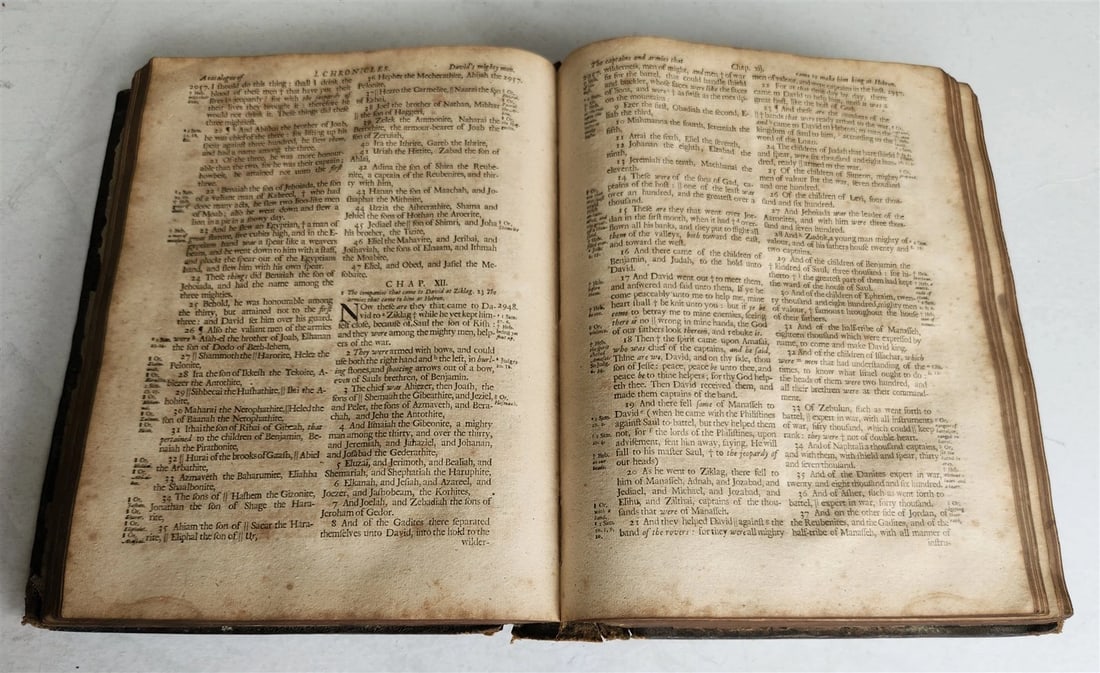 A catalogue of
I. CHRONICLES.
David's mighty men.
should do this thing: shall I drink the
blood of these men † that have put their
lives in jeopardy? for with
their lives they brought it: therefore he
would not drink it. These things did
three mightiest.
20 ¶ And Abishai the brother of Joab,
he was chief of the three: for lifting up his
spear against three hundred, he slew them,
and had a name among the three.
21 Of the three, he was more honour-
able than the two, for he was their captain:
howbeit, he attained not unto the first
three.
22 Benaiah the son of Jehoiada, the son
of a valiant man of Kabzeel, † who had
done many acts, he slew two lion-like men
of Moab; also he went down and slew a
lion in a pit in a snowy day.
23 And he slew an Egyptian, † a man of
great stature, five cubits high, and in the E-
gyptians hand was a spear like a weavers
beam; and he went down to him with a staff,
and pluckt the spear out of the Egyptians
hand, and slew him with his own spear.
24 These things did Benaiah the son of
Jehoiada, and had the name among the
three mighties.
25 Behold, he was honourable among
the thirty, but attained not to the first
three: and David set him over his guard.
26 ¶ Also the valiant men of the armies
were Asah-el the brother of Joab, Elhanan
the son of Dodo of Beth-lehem,
27 || Shammoth the || Harorite, Helez the
Pelonite,
28 Ira the son of Ikkesh the Tekoite, A-
biezer the Antothite,
29 || Sibbecai the Hushathite, || Ilai the A-
hohite,
30 Maharai the Netophathite, || Heled the
son of Baanah the Netophathite,
31 Ithai the son of Ribai of Gibeah, that
pertained to the children of Benjamin, Be-
naiah the Pirathonite,
32 || Hurai of the brooks of Gaash, || Abiel
the Arbathite,
33 Azmaveth the Baharumite, Eliahba
the Shaalbonite,
34 The sons of || Hashem the Gizonite,
Jonathan the son of Shage the Hara-
rite,
35 Ahiam the son of || Sacar the Hara-
rite, || Eliphal the son of || Ur,
36 Hepher the Mecherathite, Ahijah the
Pelonite,
37 || Hezro the Carmelite, || Naarai the son
of Ezbai,
38 Joel the brother of Nathan, Mibhar
|| the son of Haggeri,
39 Zelek the Ammonite, Naharai the
Berothite, the armour-bearer of Joab the
son of Zeruiah,
40 Ira the Ithrite, Gareb the Ithrite,
41 Uriah the Hittite, Zabad the son of
Ahlai,
42 Adina the son of Shiza the Reube-
nite, a captain of the Reubenites, and thir-
ty with him,
43 Hanan the son of Maachah, and Jo-
shaphat the Mithnite,
44 Uzzia the Ashterathite, Shama and
Jehiel the sons of Hothan the Aroerite,
45 Jediael the || son of Shimri, and Joha
his brother, the Tizite,
46 Eliel the Mahavite, and Jeribai, and
Joshaviah, the sons of Elnaam, and Ithmah
the Moabite,
47 Eliel, and Obed, and Jasiel the Me-
sobaite.
CHAP. XII.
1 The companies that came to David at Ziklag. 23 The
armies that came to him at Hebron.
NOw these are they that came to Da-
vid to * Ziklag † while he yet kept him-
self close, because of Saul the son of Kish:
and they were among the mighty men, help-
ers of the war.
2948.
2 They were armed with bows, and could
use both the right hand and the left, in hurl-
ing stones, and shooting arrows out of a bow,
even of Sauls brethren, of Benjamin.
3 The chief was Ahiezer, then Joash, the
sons of || Shemaah the Gibeathite, and Jeziel,
and Pelet, the sons of Azmaveth, and Bera-
chah, and Jehu the Antothite,
4 And Ismaiah the Gibeonite, a mighty
man among the thirty, and over the thirty,
and Jeremiah, and Jahaziel, and Johanan,
and Josabad the Gederathite,
5 Eluzai, and Jerimoth, and Bealiah, and
Shemariah, and Shephatiah the Haruphite,
6 Elkanah, and Jesiah, and Azareel, and
Joezer, and Jashobeam, the Korhites,
7 And Joelah, and Zebadiah the sons of
Jeroham of Gedor.
8 And of the Gadites there separated
themselves unto David, into the hold to the
wilder-
The captains and armies that
Chap. xii.
came to make him king at Hebron.
wilderness, men of might, and men † of war
fit for the battel, that could handle shield
and buckler, whose faces were like the faces
of lions, and were † as swift as the roes upon
the mountains:
9 Ezer the first, Obadiah the second, E-
liab the third,
10 Mishmanna the fourth, Jeremiah the
fifth,
11 Attai the sixth, Eliel the seventh,
12 Johanan the eighth, Elzabad the
ninth,
13 Jeremiah the tenth, Machbanai the
eleventh.
14 These were of the sons of Gad, ca-
ptains of the host: || one of the least was
over an hundred, and the greatest over a
thousand.
15 These are they that went over Jor-
dan in the first month, when it had † over-
flown all his banks, and they put to flight all
them of the valleys, both toward the east,
and toward the west.
16 And there came of the children of
Benjamin, and Judah, to the hold unto
David.
17 And David went out † to meet them,
and answered and said unto them, If ye be
come peaceably unto me to help me, mine
heart shall † be knit unto you: but if ye be
come to betray me to mine enemies, seeing
there is no || wrong in mine hands, the God
of our fathers look thereon, and rebuke it.
18 Then † the spirit came upon Amasai,
who was chief of the captains, and he said,
Thine are we, David, and on thy side, thou
son of Jesse: peace, peace be unto thee, and
peace be to thine helpers; for thy God help-
eth thee. Then David received them, and
made them captains of the band.
19 And there fell some of Manasseh to
David (when he came with the Philistines
against Saul to battel, but they helped them
not, for the lords of the Philistines, upon
advisement, sent him away, saying, He will
fall to his master Saul, † to the jeopardy of
our heads)
20 As he went to Ziklag, there fell to
him of Manasseh, Adnah, and Jozabad, and
Jediael, and Michael, and Jozabad, and
Elihu, and Zilthai, captains of the thou-
sands that were of Manasseh.
21 And they helped David || against the
band of the rovers: for they were all mighty
men of valour, and were captains in the host.
22 For at that time day by day, there
came to David to help him, until it was a
great host, like the host of God.
23 ¶ And these are the numbers of the
|| bands that were ready armed to the war,
and came to David to Hebron, to turn the
kingdom of Saul to him, according to the
word of the LORD.
24 The children of Judah that bare shield
and spear, were six thousand and eight hun-
dred, ready || armed to the war.
25 Of the children of Simeon, mighty
men of valour for the war, seven thousand
and one hundred.
26 Of the children of Levi, four thou-
sand and six hundred.
27 And Jehoiada was the leader of the
Aaronites, and with him were three thou-
sand and seven hundred.
28 And Zadok, a young man mighty of
valour, and of his fathers house twenty and
two captains.
29 And of the children of Benjamin the
† kindred of Saul, three thousand: for hi-
therto † the greatest part of them had kept
the ward of the house of Saul.
30 And of the children of Ephraim, twen-
ty thousand and eight hundred, mighty men
of valour, † famous throughout the house
of their fathers.
31 And of the half-tribe of Manasseh,
eighteen thousand which were expressed by
name, to come and make David king.
32 And of the children of Issachar, which
were men that had understanding of the
times, to know what Israel ought to do:
the heads of them were two hundred, and
all their brethren were at their command-
ment.
33 Of Zebulun, such as went forth to
battel, || expert in war, with all instruments
of war, fifty thousand, which could || keep
rank: they were † not of double heart.
34 And of Naphtali a thousand captains,
and with them, with shield and spear, thirty
and seven thousand.
35 And of the Danites expert in war,
twenty and eight thousand and six hundred.
36 And of Asher, such as went forth to
battel, || expert in war, forty thousand.
37 And on the other side of Jordan, of
the Reubenites, and the Gadites, and of the
half-tribe of Manasseh, with all manner of
instru-